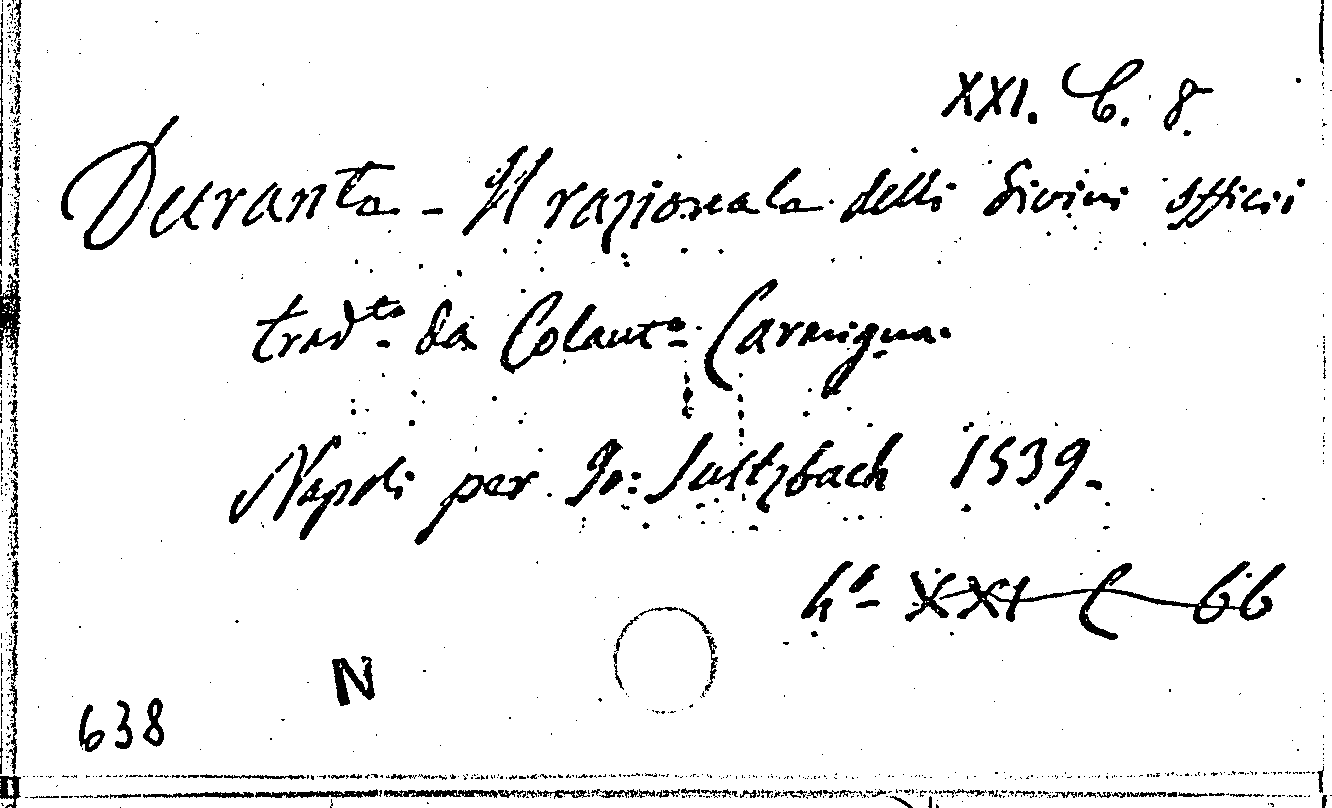 XXI. C. 8.
Durante - Il razionale delli divini officii
trad.to da Colant.o Carmigna.
Napoli per Jo: Sultzbach 1539.
4°- XXI C 66
N
638